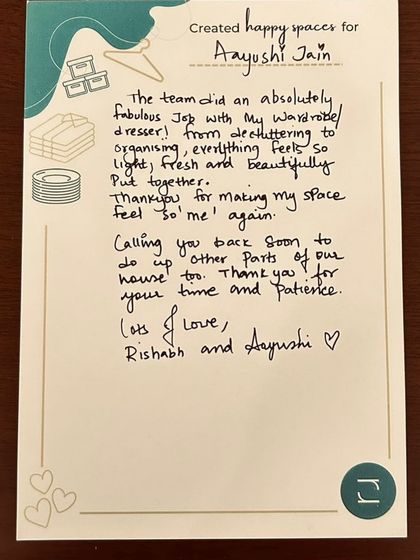 Created happy spaces for
Aayushi Jain
The team did an absolutely
fabulous Job with My Wardrobe/
dresser! from decluttering to
organising, everything feels so
light, fresh and beautifully
Put together.
Thankyou for making My space
feel so 'me' again.
Calling you back Soon to
do up other Parts of our
house too. Thank you for
your time and Patience.
Lots of Love,
Rishabh and Aayushi ♡